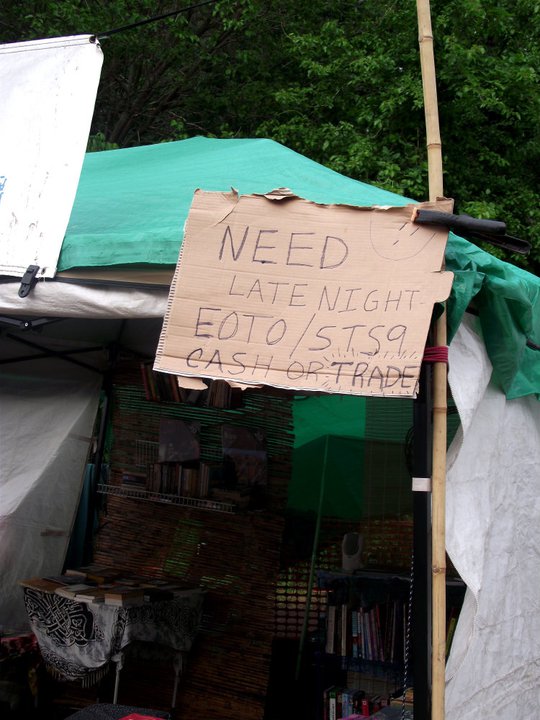 NEED
LATE NIGHT
EOTO/STS9
CASH OR TRADE